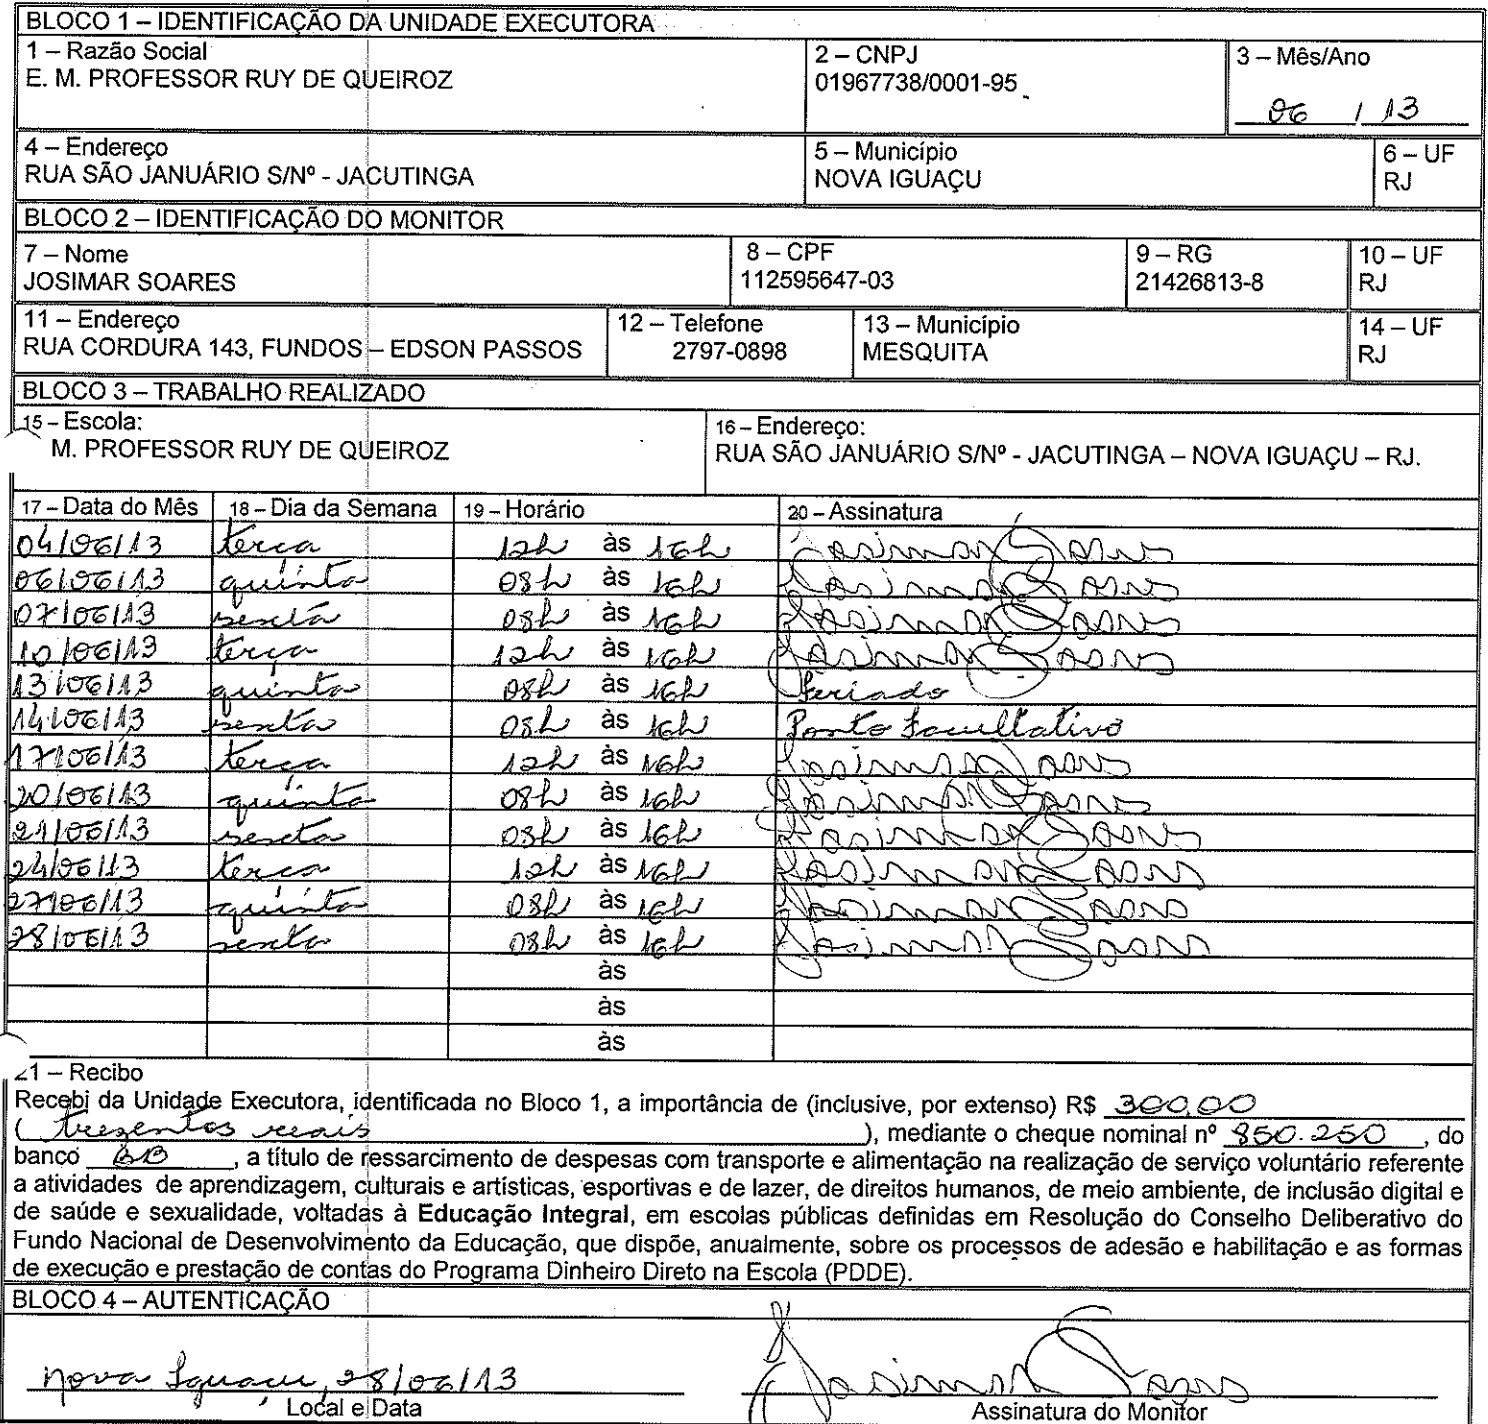 BLOCO 1 – IDENTIFICAÇÃO DA UNIDADE EXECUTORA
1 – Razão Social
E. M. PROFESSOR RUY DE QUEIROZ
2 – CNPJ
01967738/0001-95
3 – Mês/Ano
06 / 13
4 – Endereço
RUA SÃO JANUÁRIO S/Nº - JACUTINGA
5 – Município
NOVA IGUAÇU
6 – UF
RJ
BLOCO 2 – IDENTIFICAÇÃO DO MONITOR
7 – Nome
JOSIMAR SOARES
8 – CPF
112595647-03
9 – RG
21426813-8
10 – UF
RJ
11 – Endereço
RUA CORDURA 143, FUNDOS – EDSON PASSOS
12 – Telefone
2797-0898
13 – Município
MESQUITA
14 – UF
RJ
BLOCO 3 – TRABALHO REALIZADO
15 – Escola:
M. PROFESSOR RUY DE QUEIROZ
16 – Endereço:
RUA SÃO JANUÁRIO S/Nº - JACUTINGA – NOVA IGUAÇU – RJ.
17 – Data do Mês 18 – Dia da Semana 19 – Horário 20 – Assinatura
04/06/13 terça 12h às 16h Josimar Soares
06/06/13 quinta 08h às 16h Josimar Soares
07/06/13 sexta 08h às 16h Josimar Soares
10/06/13 terça 12h às 16h Josimar Soares
13/06/13 quinta 08h às 16h Feriado
14/06/13 sexta 08h às 16h Ponto Facultativo
17/06/13 terça 12h às 16h Josimar Soares
20/06/13 quinta 08h às 16h Josimar Soares
21/06/13 sexta 08h às 16h Josimar Soares
24/06/13 terça 12h às 16h Josimar Soares
27/06/13 quinta 08h às 16h Josimar Soares
28/06/13 sexta 08h às 16h Josimar Soares
às
às
às
21 – Recibo
Recebi da Unidade Executora, identificada no Bloco 1, a importância de (inclusive, por extenso) R$ 300,00
( trezentos reais ), mediante o cheque nominal nº 850.250, do
banco BB, a título de ressarcimento de despesas com transporte e alimentação na realização de serviço voluntário referente
a atividades de aprendizagem, culturais e artísticas, esportivas e de lazer, de direitos humanos, de meio ambiente, de inclusão digital e
de saúde e sexualidade, voltadas à Educação Integral, em escolas públicas definidas em Resolução do Conselho Deliberativo do
Fundo Nacional de Desenvolvimento da Educação, que dispõe, anualmente, sobre os processos de adesão e habilitação e as formas
de execução e prestação de contas do Programa Dinheiro Direto na Escola (PDDE).
BLOCO 4 – AUTENTICAÇÃO
Nova Iguaçu, 28/06/13
Josimar Soares
Local e Data
Assinatura do Monitor